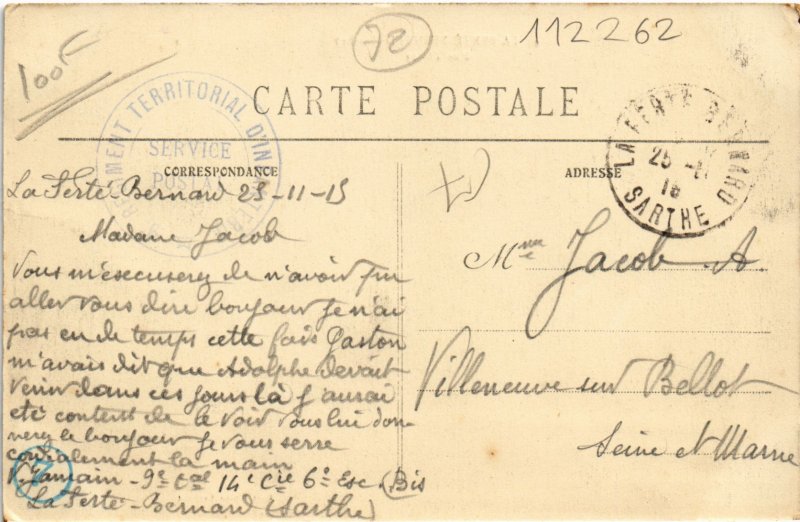 100F
72
112262
CARTE POSTALE
RÉGIMENT TERRITORIAL D'INFANTERIE
SERVICE
POSTAL
LA FERTÉ BERNARD
25 -11
15
SARTHE
CORRESPONDANCE
ADRESSE
La Ferté Bernard 25-11-15
Madame Jacob
Vous m'escuserez de n'avoir pu
aller vous dire bonjour je n'ai
pas eu de temps cette fois Gaston
m'avais dit que Adolphe devait
venir dans ces jours là j'aurai
eté content de le voir vous lui don
nerez le bonjour je vous serre
cordialement la main
9e 14e Cie 6e Esc. (Bis
La Ferté-Bernard (Sarthe)
Mme Jacob. A.
Villeneuve sur Bellot
Seine et Marne